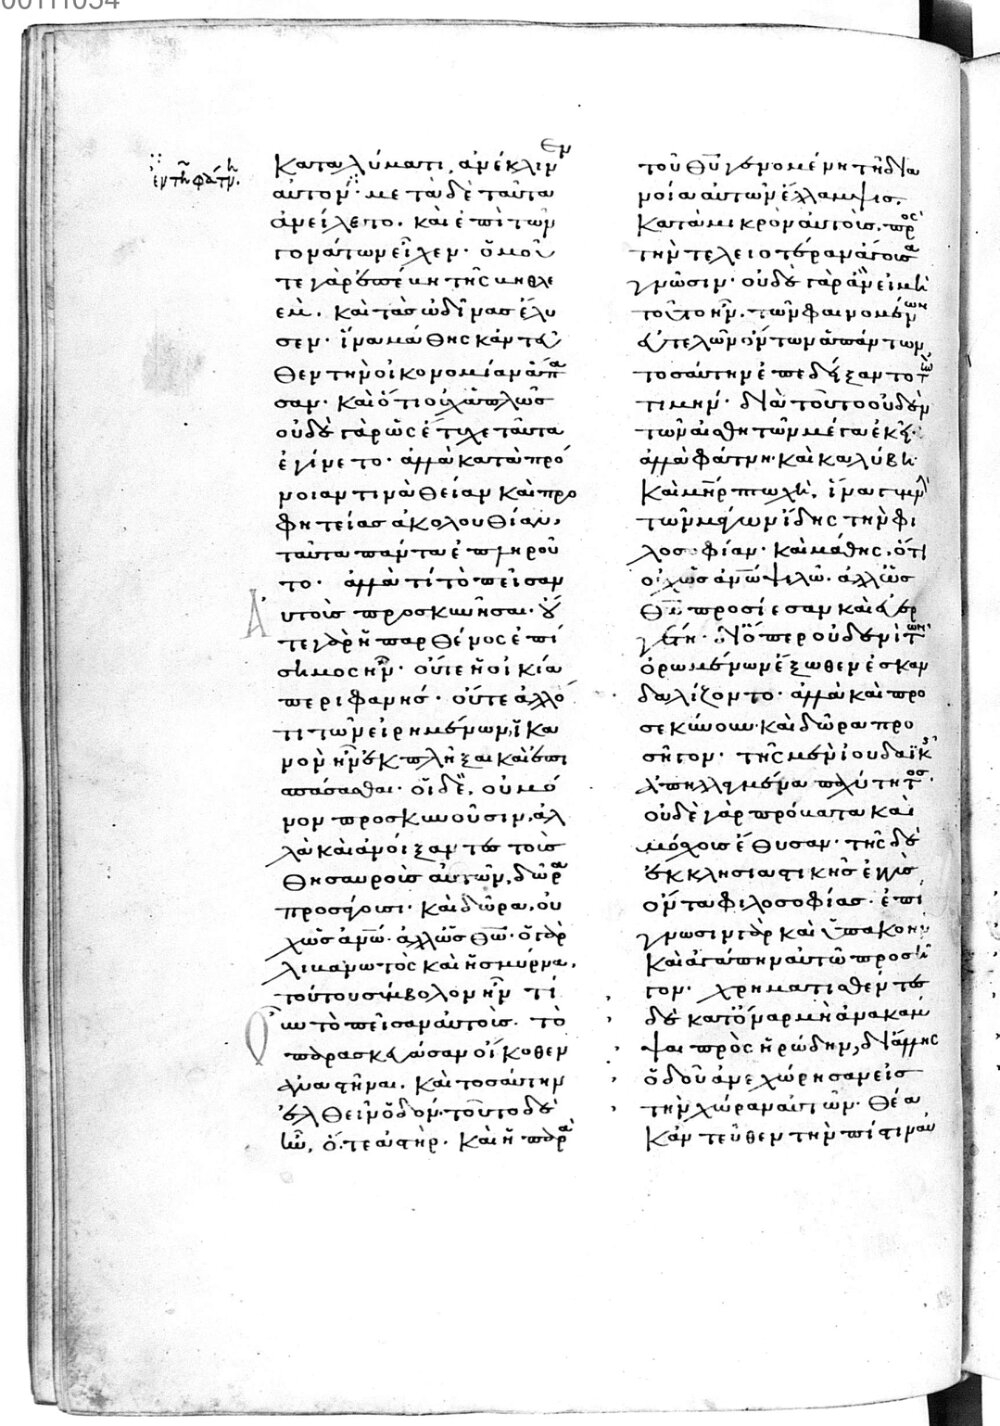 00111054
ἐν τῆ φάτνη.
καταλύματι, ἀνέκλινεν
αὐτόν· μετὰ δὲ ταῦτα
ἀνείλετο. καὶ ἐπὶ τῶν
γονάτων εἶχεν· ὁμοῦ
τε γὰρ ἐπέβη τῆς βηθλε
έμ. καὶ τὰς ὠδίνας ἔλυ
σεν· ἵνα μάθης κἀντεῦ
θεν τὴν οἰκονομίαν ἅπα
σαν· καὶ ὅτι οὐχ ἁπλῶς
οὐδὲ γὰρ ὡς ἔτυχε ταῦτα
ἐγίνετο· ἀλλὰ κατὰ πρό
νοιάν τινα θείαν καὶ προ
φητείας ἀκολουθίαν,
ταῦτα πάντα ἐπληροῦ
το· ἀλλὰ τί τὸ πεῖσαν
αὐτοὺς προσκυνῆσαι· οὔ
τε γὰρ ἡ παρθένος ἐπί
σημος ἦν· οὔτε ἡ οἰκία
περιφανής· οὔτε ἄλλό
τι τῶν εἰρημένων, ἱκα
νὸν ἦν ἐκπλῆξαι καὶ ἐπι
σπάσασθαι· οἱ δὲ, οὐ μό
νον προσκυνοῦσιν, ἀλ
λὰ καὶ ἀνοίξαντες τοὺς
θησαυροὺς αὐτῶν, δῶρα
προσάγουσι· καὶ δῶρα, οὐ
χ ὡς ἀνω· ἀλλ' ὡς θω· ὁ γὰρ
λιβανωτὸς καὶ ἡ σμύρνα,
τούτου σύμβολον ἦν τί
οὖν τὸ πεῖσαν αὐτούς. τὸ
παρασκευάσαν οἴκοθεν
ἀναστῆναι. καὶ τοσαύτην
ἐλθεῖν ὁδόν· τοῦτο δὲ
ἦν, ὅ,τε ἀστὴρ. καὶ ἡ παρὰ
τοῦ θυ γενομένη τῆ δια
νοία αὐτῶν ἔλλαμψις,
κατὰ μικρὸν αὐτοὺς, πρὸς
τὴν τελειοτέραν ἄγουσα
γνῶσιν· οὐδὲ γὰρ ἂν εἰ μὴ
τοῦτο ἦν. τῶν φαινομένων
εὐτελῶν ὄντων ἁπάντων
τοσαύτην ἐπεδείξαντο τὼ
τιμήν· διὰ τοῦτο οὐδὲν
τῶν αἰσθητῶν μέγα ἐκεῖ·
ἀλλὰ φάτνη· καὶ καλύβη·
καὶ μῆρ πτωχὴ, ἵνα γυμνὴν
τῶν μάγων ἴδης τὴν φι
λοσοφίαν· καὶ μάθης, ὅτι
οὐχ ὡς ἀνω ψιλῶ· ἀλλ' ὡς
θω προσίεσαν καὶ εὐερ
γέτη· διόπερ οὐδενὶ τῶν
ὁρωμένων ἔξωθεν ἐσκαν
δαλίζοντο· ἀλλὰ καὶ προ
σεκύνουν· καὶ δῶρα προ
σῆγον· τῆς μὲν ἰουδαϊκῆς
ἀπηλλαγμένα παχύτητος·
οὐδὲ γὰρ πρόβατα καὶ
μόσχους ἔθυσαν· τῆς δὲ
ἐκκλησιαστικῆς ἐγγὺς
ὄντα φιλοσοφίας· ἐπί
γνωσιν γὰρ καὶ ὑπακοὴν
καὶ ἀγάπην αὐτῶ προσῆ
γον· χρηματισθέντες
δὲ κατ' ὄναρ μὴ ἀνακάμ
ψαι πρὸς ἡρώδην, δι' ἄλλης
ὁδοῦ ἀνεχώρησαν εἰς
τὴν χώραν αὐτῶν· θέα
κἀντεῦθεν τὴν πίστιν αὐ